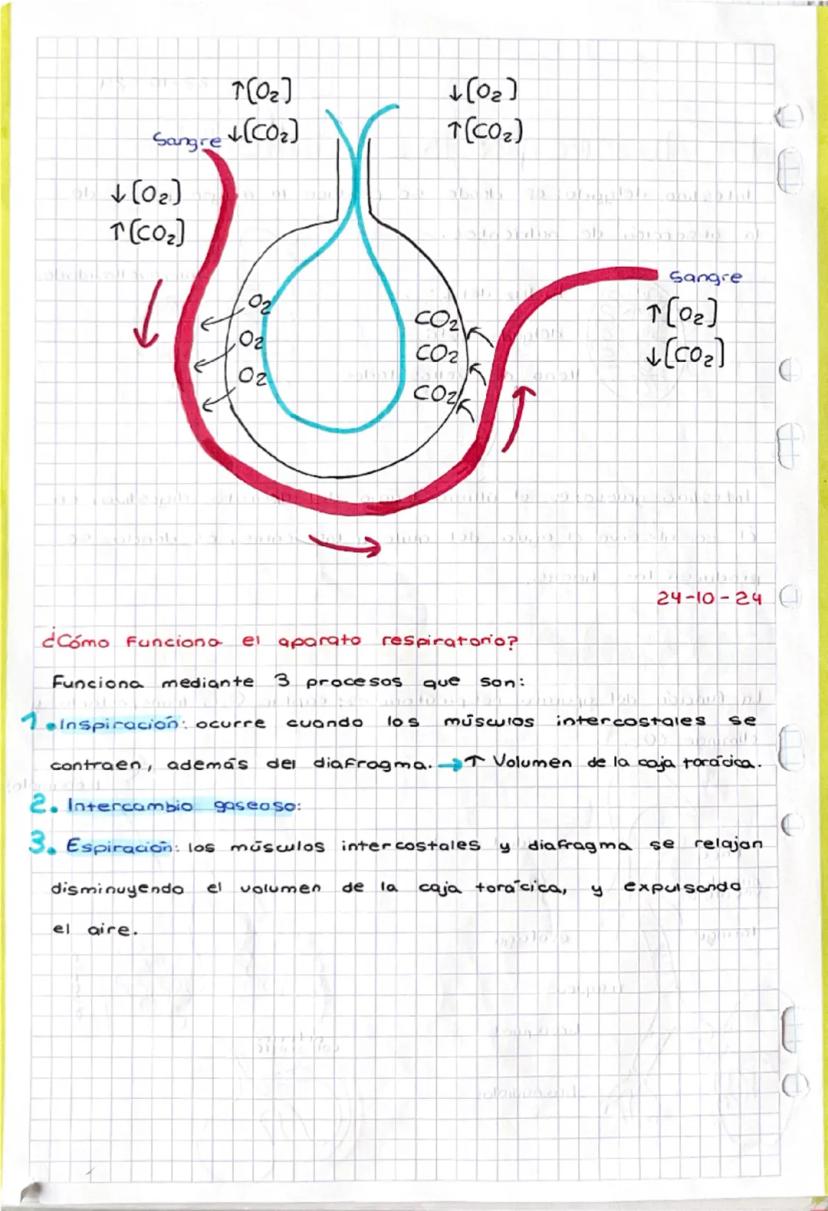 ↑[O₂]
↓[CO₂]
↓[O₂]
↑[CO₂]
Sangre
↓[O₂]
↑[CO₂]
Sangre
↑[O₂]
↓[CO₂]
O₂
O₂
O₂
CO₂
CO₂
CO₂
24-10-24
¿Cómo Funciona el aparato respiratorio?
Funciona mediante 3 procesos que son:
1. Inspiración: ocurre cuando los músculos intercostales se
contraen, además del diafragma. → ↑ Volumen de la caja torácica.
2. Intercambio gaseoso:
3. Espiración: los músculos intercostales y diafragma se relajan
disminuyendo el volumen de la caja torácica, y expulsando
el aire.